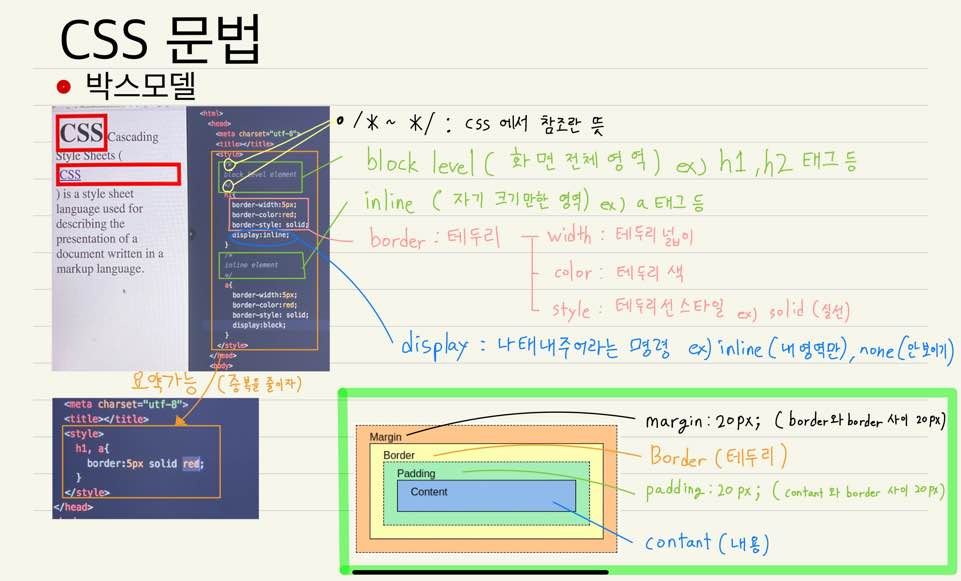 CSS 문법
박스모델
CSS Cascading
Style Sheets (
CSS
) is a style sheet
language used for
describing the
presentation of a
document written in a
markup language.
<html>
<head>
<meta charset="utf-8">
<title></title>
<style>
/*
block level element
*/
border-width:5px;
border-color:red;
border-style: solid;
display:inline;
}
/*
inline element
*/
a{
border-width:5px;
border-color:red;
border-style: solid;
display:block;
}
</style>
</head>
<body>
/* ~ */ : css 에서 참조란 뜻
block level ( 화면 전체 영역 ) ex) h1, h2 태그 등
inline ( 자기 크기만한 영역) ex) a 태그 등
border : 테두리
width : 테두리 넓이
color : 테두리 색
style : 테두리선 스타일 ex) solid (실선)
display : 나태내주어라는 명령 ex) inline (내 영역만), none (안 보이기)
요약가능 (중복을 줄이자)
<meta charset="utf-8">
<title></title>
<style>
h1, a{
border:5px solid red;
}
</style>
</head>
Margin
Border
Padding
Content
margin : 20px; ( border와 border 사이 20px)
Border (테두리)
padding : 20px; ( contant 와 border 사이 20px)
contant (내용)